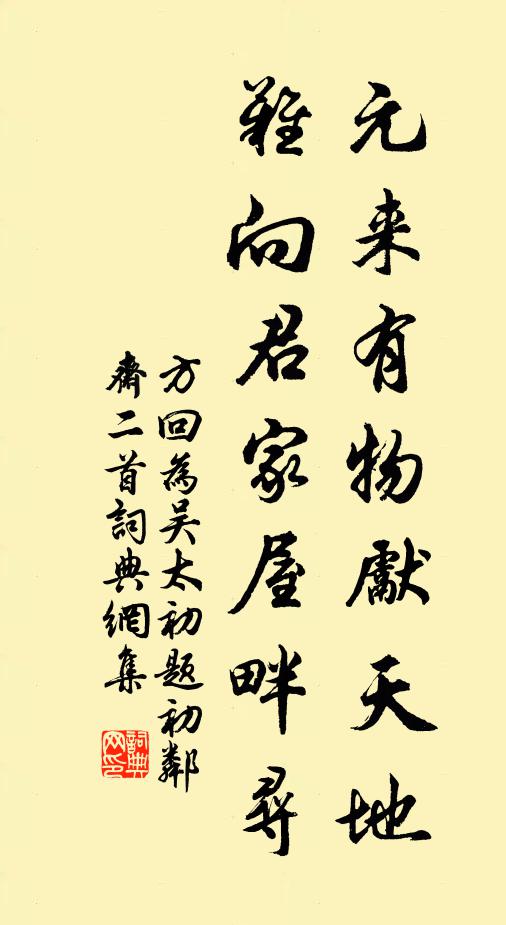 元来有物獻天地
難向君家屋畔尋
方回為吴太初題初鄰
齋二首詞典網集
詞典
网印